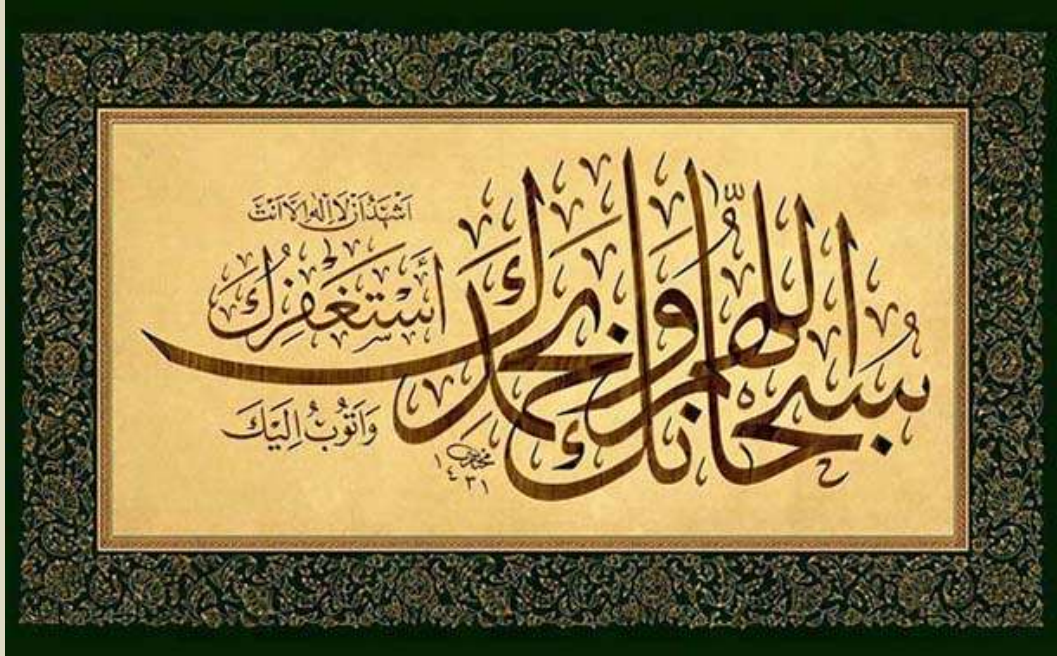 سُبْحَانَكَ اللّٰهُمَّ وَبِحَمْدِكَ
اَشْهَدُ اَنْ لَا اِلٰهَ اِلَّا اَنْتَ
أَسْتَغْفِرُكَ
وَاَتُوبُ اِلَيْكَ
١٤٣١